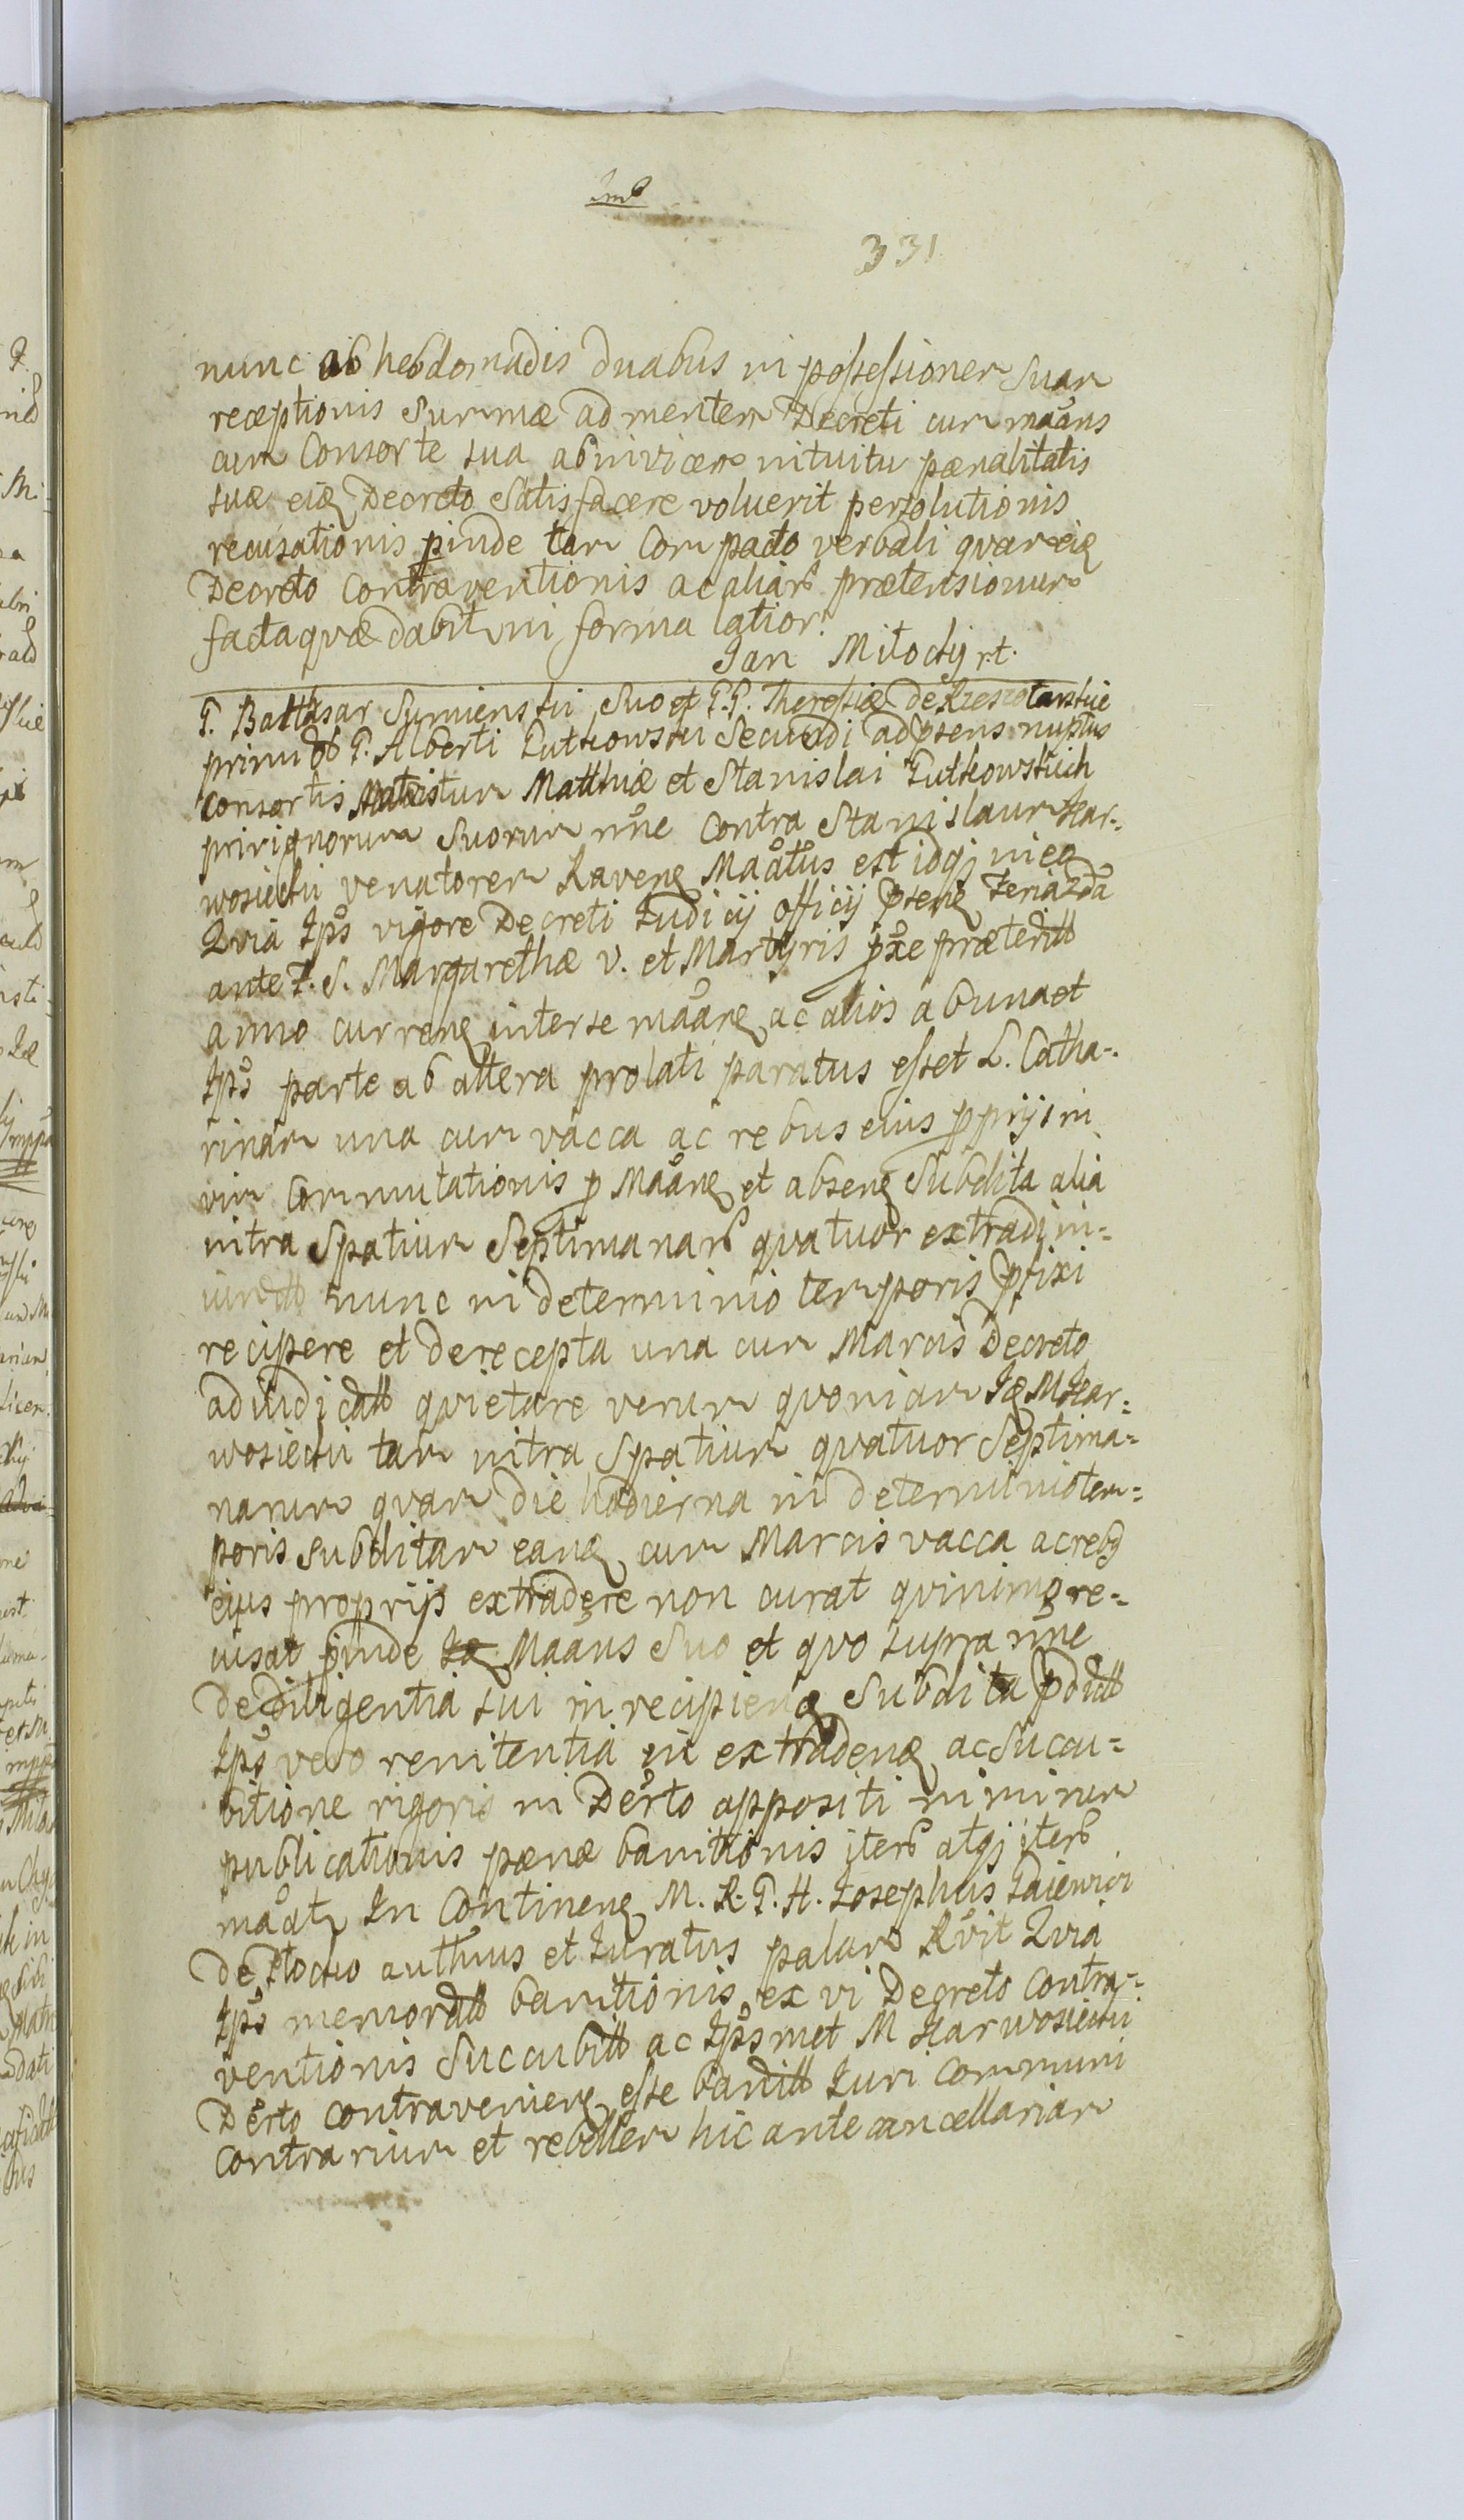 331
nunc ab hebdomadis duabus in possessionem suam
receptionis summæ ad mentem Decreti cum maãns
cum Consorte sua ab invicem intuitu pœnalitatis
suæ eiq Decreto satisfacere voluerit persolutionis
recusationis pinde tam Compacto verbali quam eiq
Decreto Contraventionis ac aliarũ prætensionum
facta quæ dabit in forma latior:
Jan Miłocky r.t.
P. Balthasar Sumienski suo et P.P. Theressiæ de
primi P. Alberti Lutkowski Secundi ad psens nuptus
consortis Matthiæ et Stanislai Lutkowskich
privignorum suorum nñe Contra Stanislaum Kar-
wosiecki venatorem Raveng Maãtus est idqj in eo
Qvia Ips vigore Decreti Judicij officij pseng feria 2da
ante F. S. Margarethæ V. et Martyris pxe præterit
anno curreng inter se maãng ac alios ab una et
Ips parte ab altera prolati paratus esset L. Catha-
rinam una cum vacca ac rebus eius pprijs in
vim Commutationis p Maãng et abseng Subdita alia
intra Spatium Septimanarũ quatuor extradi in-
nunc in determinio temporis pfixi
recipere et de recepta una cum Marcis Decreto
adiudicatt quietare verum quoniam M Kar-
wosiecki tam intra Spatium quatuor Septima-
narum quam die hodierna in determinio tem-
poris subditam eanq cum Marcis vacca ac rebq
eius proprijs extradere non curat quinimo re-
cusat pinde Maãns Suo et quo supra nñe
De Diligentia sui in recipieng Subdita pditt
Ips vero renitentia in extradeng ac Succu-
bitione rigoris in Derto appositi nimirum
publicationis pænæ banitionis iterũ atqj iterũ
maãt In Contineng M. R. P. H. Josephus
de Plocko authnus et Juratus palam Rvit Qvia
Ips memoratt banitionis ex vi Decreto Contra-
ventionis succubitt ac Ipsmet M Karwosiecki
Derto contravenieng esse banitt Juri Communi
Contrarium et rebellem hic ante cancellariam